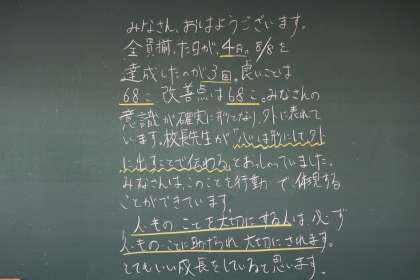 みなさん、おはようございます。
全員揃った日が、4日。8/8を
達成したのが3回。良いことは
68こ 改善点は68こ。みなさんの
意識が確実に形となり、外に表れて
います。校長先生が「心は形にして外
に出すことで伝わる」とおっしゃっていました。
みなさんは、このことを行動で、体現する
ことができています。
人・もの・ことを大切にする人は、必ず
人・もの・ことに助けられ大切にされます。
とてもいい成長をしていると思います。